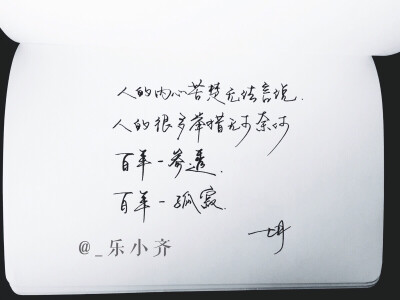 人的内心苦楚无法言说.
人的很多举措无可奈何
百年一参透.
百年一孤寂.
@_乐小齐